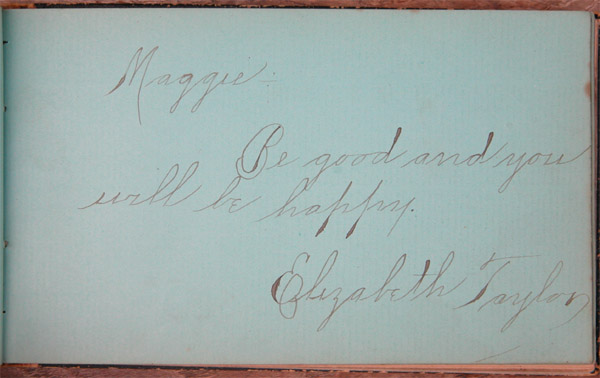 Maggie:
Be good and you
will be happy.
Elizabeth Taylor